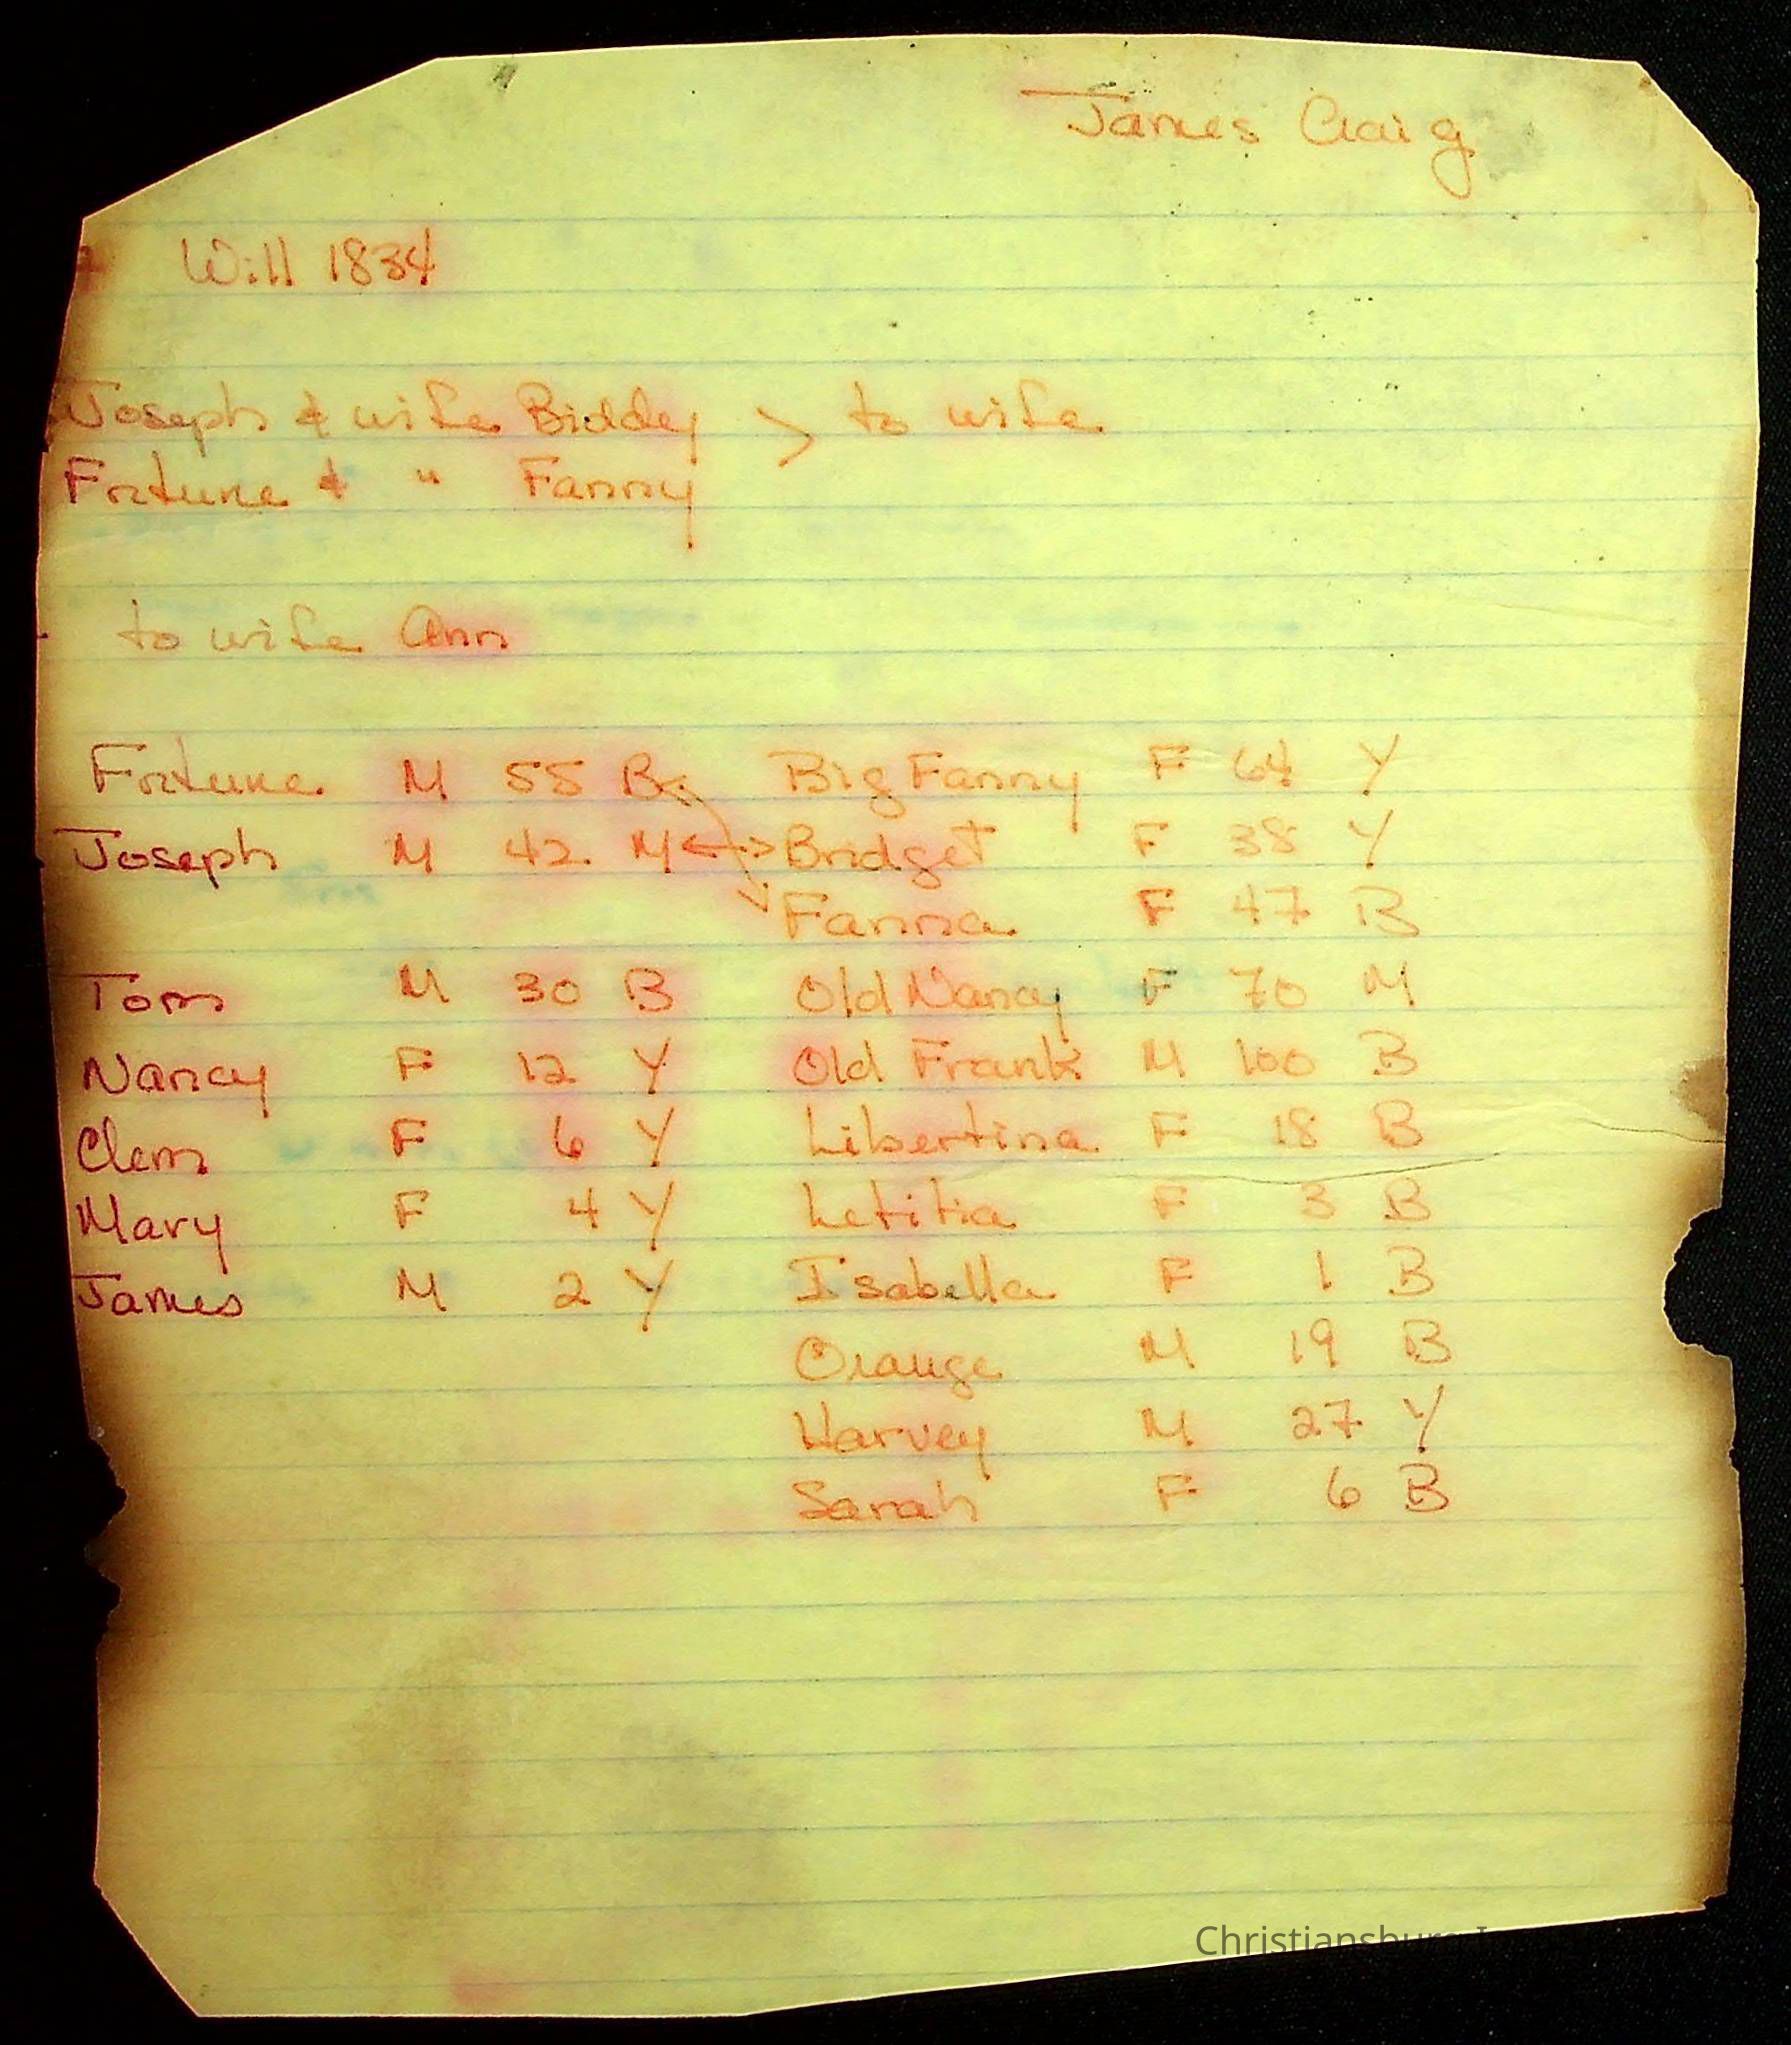 James Craig
Will 1834
Joseph & wife Biddey > to wife
Fortune & " Fanny
to wife Ann
Fortune M 55 B Big Fanny F 64 Y
Joseph M 42 M ↔ Bridget F 38 Y
Fanna F 47 B
Tom M 30 B Old Nancy F 70 M
Nancy F 12 Y Old Frank M 100 B
Clem F 6 Y Libertina F 18 B
Mary F 4 Y Letitia F 3 B
James M 2 Y Isabella F 1 B
Orange M 19 B
Harvey M 27 Y
Sarah F 6 B
Christiansburg